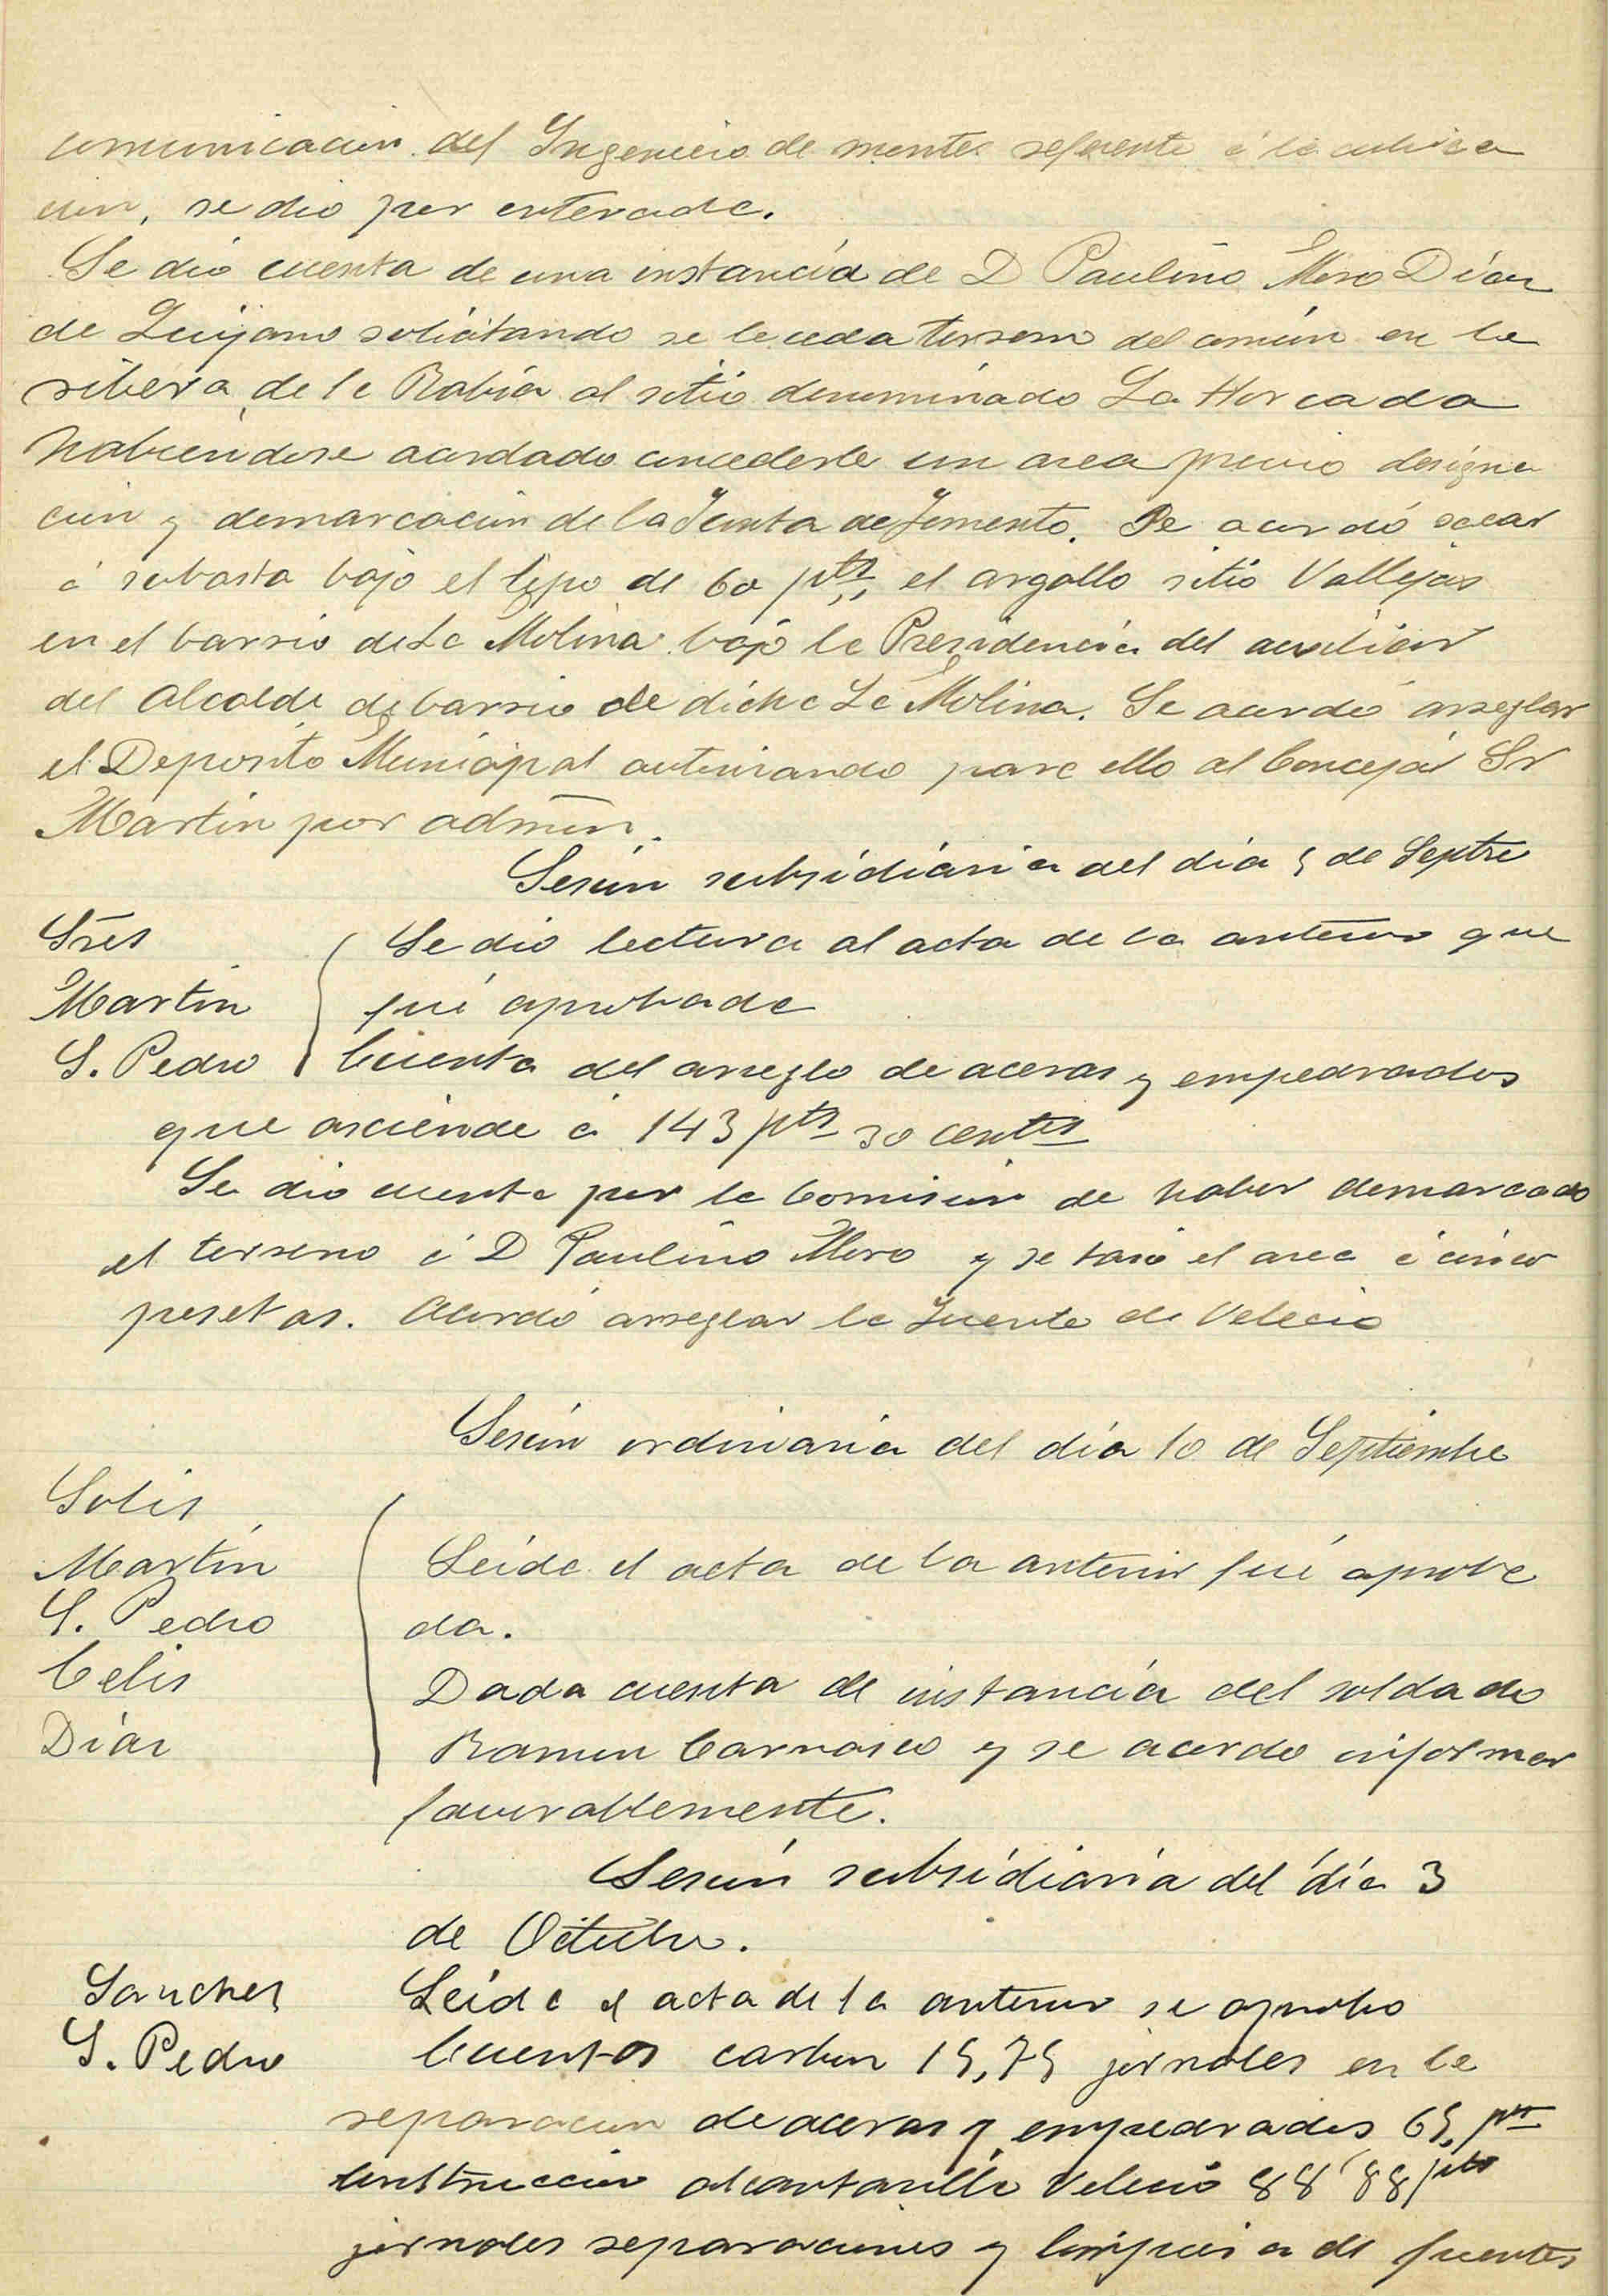 comunicacion del Ingeniero de montes referente á la cubica
cion, se dio por enterada.
Se dió cuenta de una instancia de D Paulino Mero Diaz
de Quijano solicitando se le ceda terreno del común en la
ribera de la Rabia al sitio denominado La Horcada
habiendose acordado concederle un area previo designa
cion y demarcación de la Junta de Fomento. Se acordó sacar
á subasta bajo el tipo de 60 pts, el argallo sitio Vallejas
en el barrio de La Molina bajo la Presidencia del auxiliar
del Alcalde de barrio de dicha La Molina. Se acordó arreglar
el Deposito Municipal autorizando para ello al Concejal Sr
Martin por admon.
Sesión subsidiaria del dia 5 de Septre
Sres
Se dio lectura al acta de la anterior que
Martin
fué aprobada
S. Pedro
Cuenta del arreglo de aceras y empedrados
que asciende á 143 pts 30 cents
Se dio cuenta por la Comision de haber demarcado
el terreno á D Paulino Mero y se tasó el area á cinco
pesetas. Acordó arreglar la Fuente de Velecio
Sesión ordinaria del día 10 de Septiembre
Solis
Martin
Leida el acta de la anterior fué aproba
S. Pedro
da.
Celis
Dada cuenta de instancia del soldado
Diaz
Ramon Carrasco y se acordo informar
favorablemente.
Sesión subsidiaria del día 3
de Octubre.
Sanchez
Leida el acta de la anterior se aprobo
S. Pedro
Cuentas carbon 15,75 jornales en la
reparacion de aceras y empedrados 65, pts
construccion alcantarilla Velecio 88'88 pts
jornales reparaciones y limpieza de fuentes